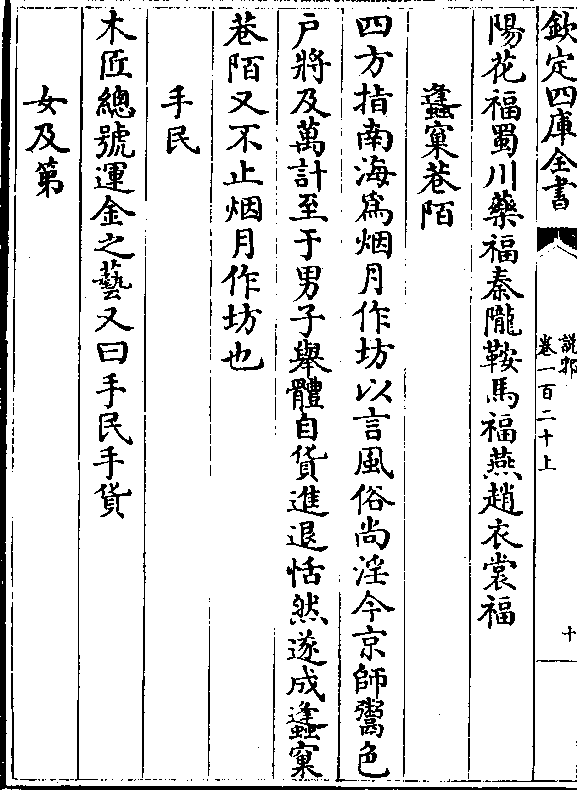 欽定四庫全書
說郛
卷一百二十上
十
陽花福蜀川藥福秦隴鞍馬福燕趙衣裳福
蠭窠巷陌
四方指南海爲烟月作坊以言風俗尚淫今京師鬻色
戸將及萬計至于男子舉體自貨進退恬然遂成蠭窠
巷陌又不止烟月作坊也
手民
木匠總號運金之藝又曰手民手貨
女及第